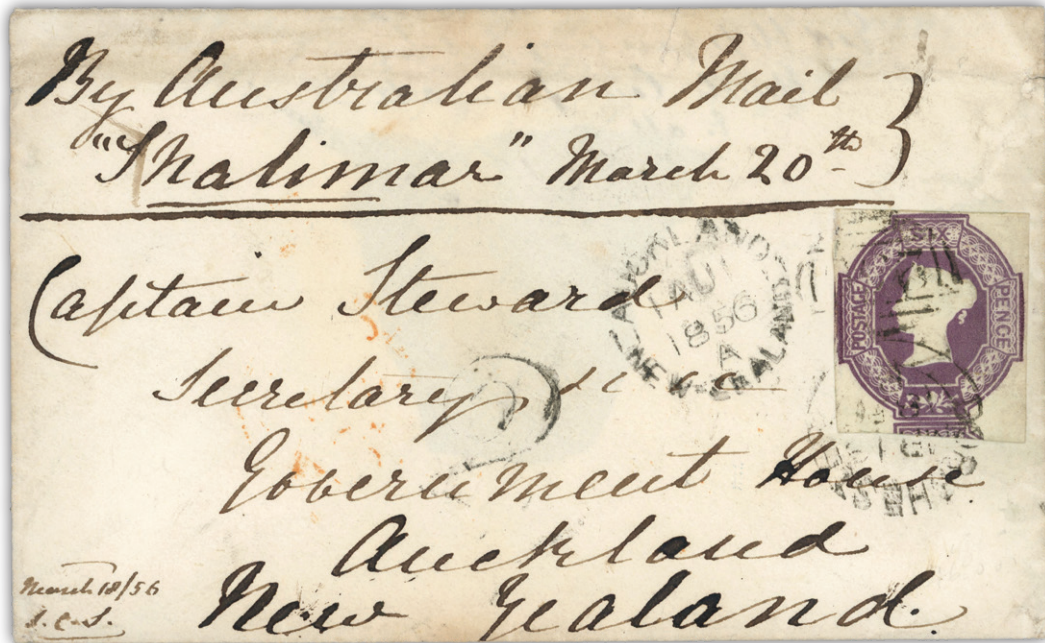 By Australian Mail
"Shalimar" March 20th
Captain Steward
Secretary
Government House
Auckland
New Zealand.
March 18/56
AUCKLAND
1 AU
1856
A
NEW-ZEALAND
SIX
POSTAGE
PENCE